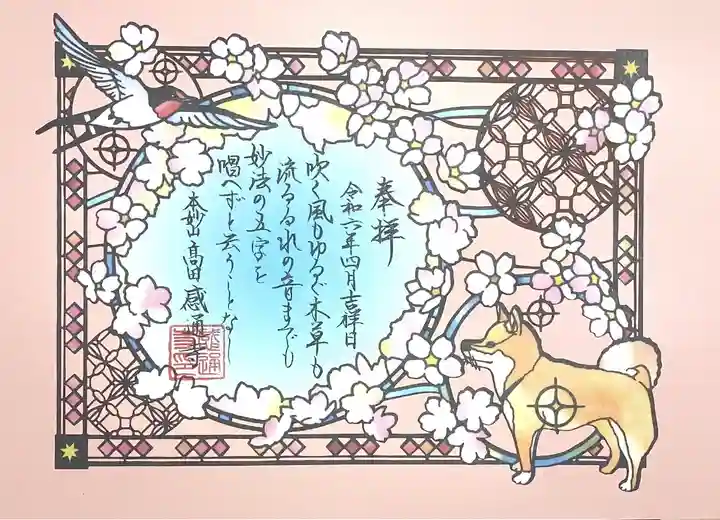 奉拝
令和六年四月吉祥日
吹く風もゆるぐ木草も
流るる水の音までも
妙法の五字を
唱へずと云うことな
本妙山 高田 感通寺
感通